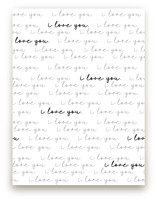 i love you i love you
i love you i love you i love you
love you i love you i love you
i love you i love you i love you
love you i love you i love you
i love you i love you i love you
love you i love you i love you
i love you i love you i love you
love you i love you i love you
i love you i love you i love you
love you i love you i love you
i love you i love you i love you
love you i love you i love you
i love you i love you